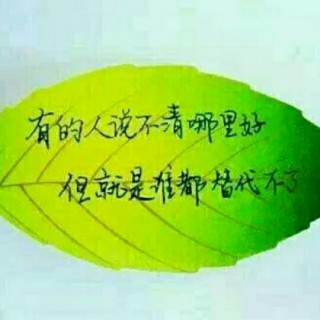 有的人说不清哪里好
但就是谁都替代不了